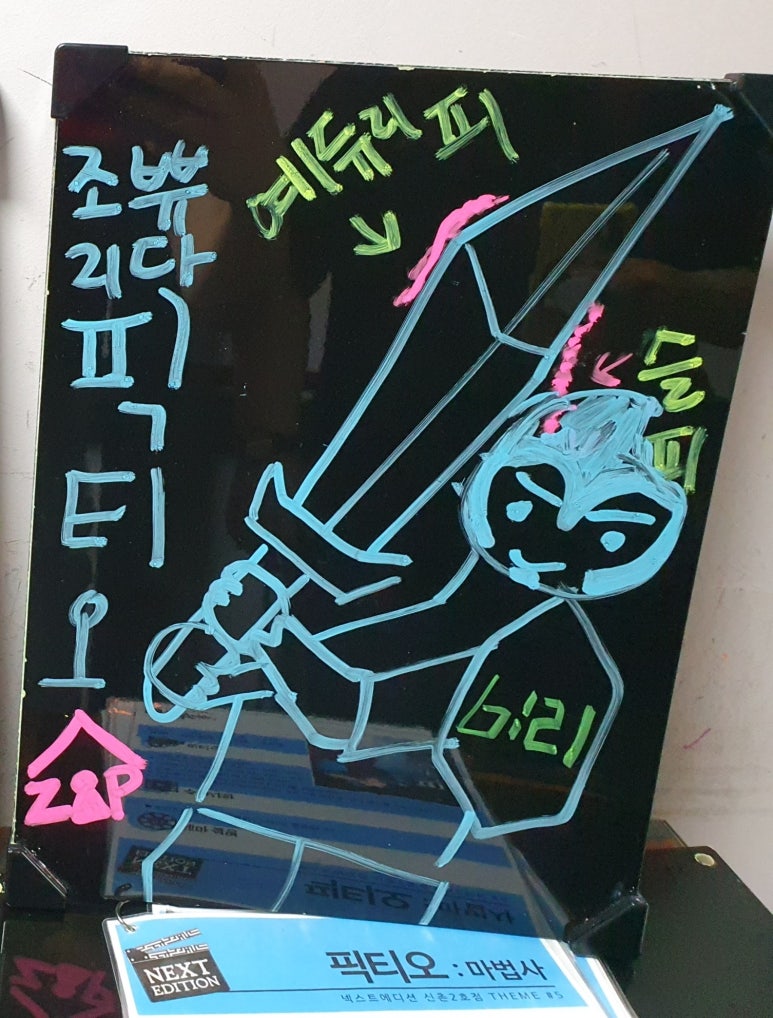 예듀리피
조쀼
리다
픽
티
오
6:21
NEXT
EDITION
픽티오 : 마법사
넥스트에디션 신촌2호점 THEME #5